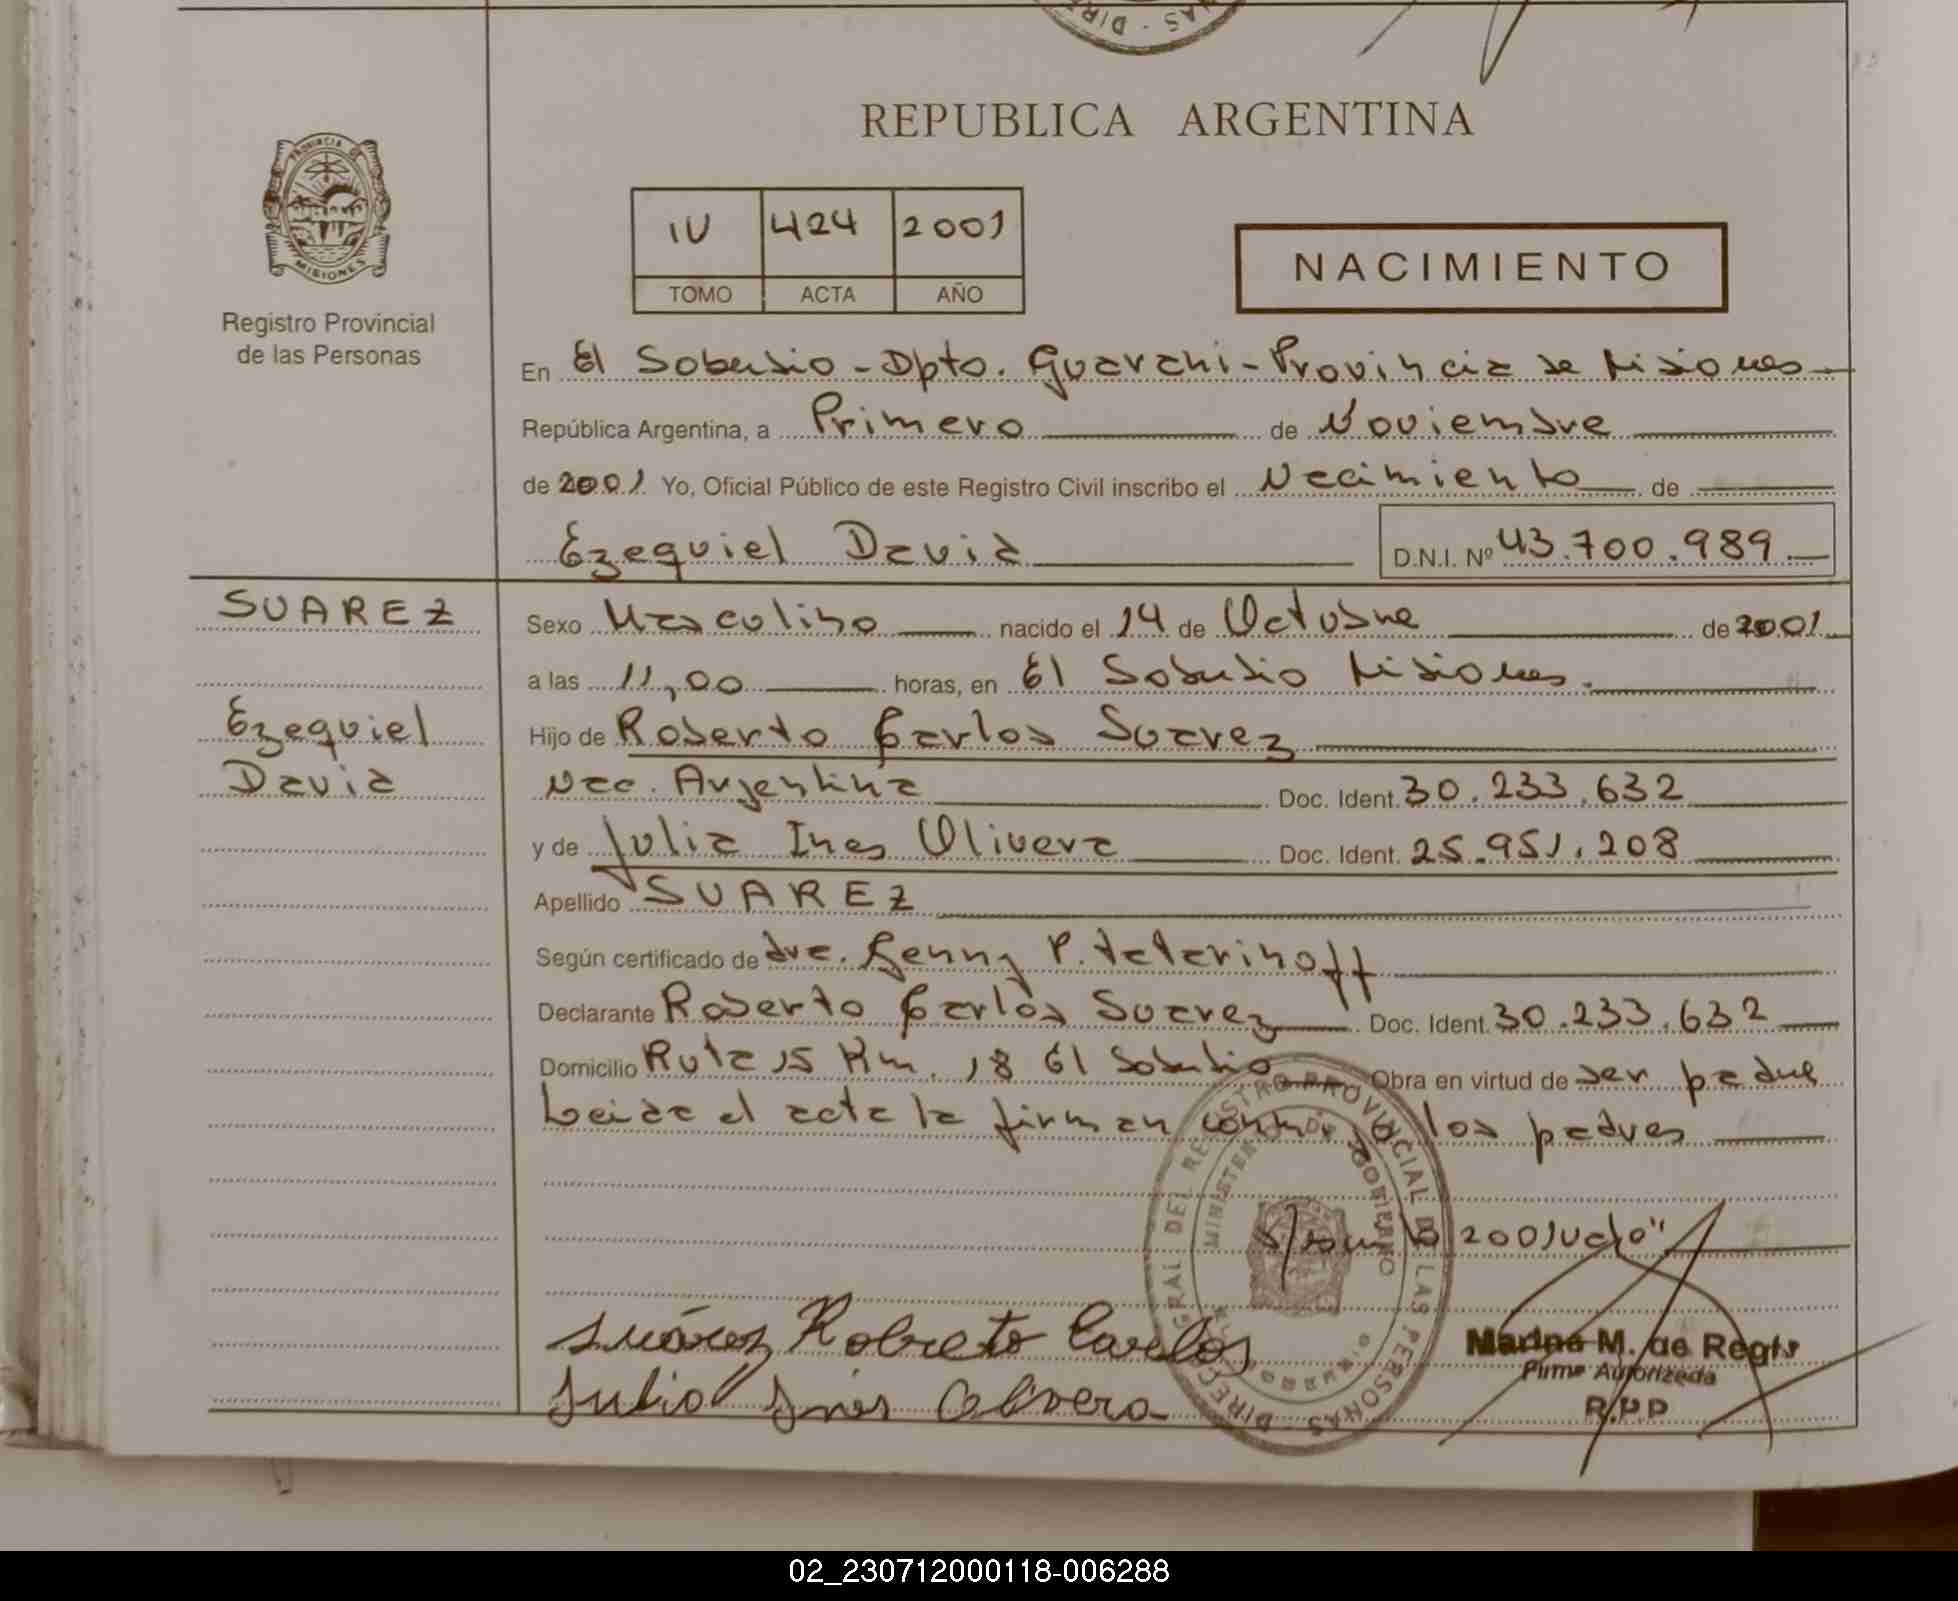 REPUBLICA ARGENTINA
PROVINCIA DE
MISIONES
Registro Provincial
de las Personas
IV 424 2001
TOMO ACTA AÑO
NACIMIENTO
En El Soberbio - Dpto. Guarani - Provincia de Misiones
República Argentina, a Primero de Noviembre
de 2001 Yo, Oficial Público de este Registro Civil inscribo el Nacimiento de
Ezequiel David D.N.I. Nº 43.700.989
SUAREZ
Ezequiel
David
Sexo Masculino nacido el 14 de Octubre de 2001
a las 11,00 horas, en El Soberbio Misiones.
Hijo de Roberto Carlos Suarez
Nac. Argentina Doc. Ident. 30.233.632
y de Julia Ines Olivera Doc. Ident. 25.951.208
Apellido SUAREZ
Según certificado de dra. Genny P. Tatarinoff
Declarante Roberto Carlos Suarez Doc. Ident. 30.233.632
Domicilio Ruta 15 Km. 18 El Soberbio Obra en virtud de ser padre
Leida el acta la firman conmigo los padres
2001 vale"
Suárez Robreto Carlos
Julia Inés Olivera
DIRECCION GENERAL DEL REGISTRO PROVINCIAL DE LAS PERSONAS
MINISTERIO DE GOBIERNO
Marina M. de Regis
Firma Autorizada
R.P.P
02_230712000118-006288